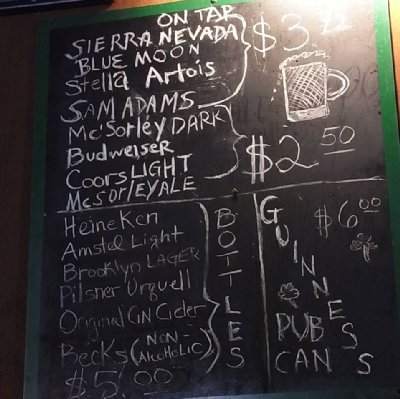 ON TAP
SIERRA NEVADA
BLUE MOON
Stella Artois
$3.75
SAM ADAMS
McSorley DARK
Budweiser
Coors LIGHT
McSorley ALE
$2.50
Heineken
Amstel Light
Brooklyn LAGER
Pilsner Urquell
Original GIN Cider
Becks (NON-ALCOHOLIC)
$5.00
BOTTLES
GUINNESS
$6.00
PUB
CANS